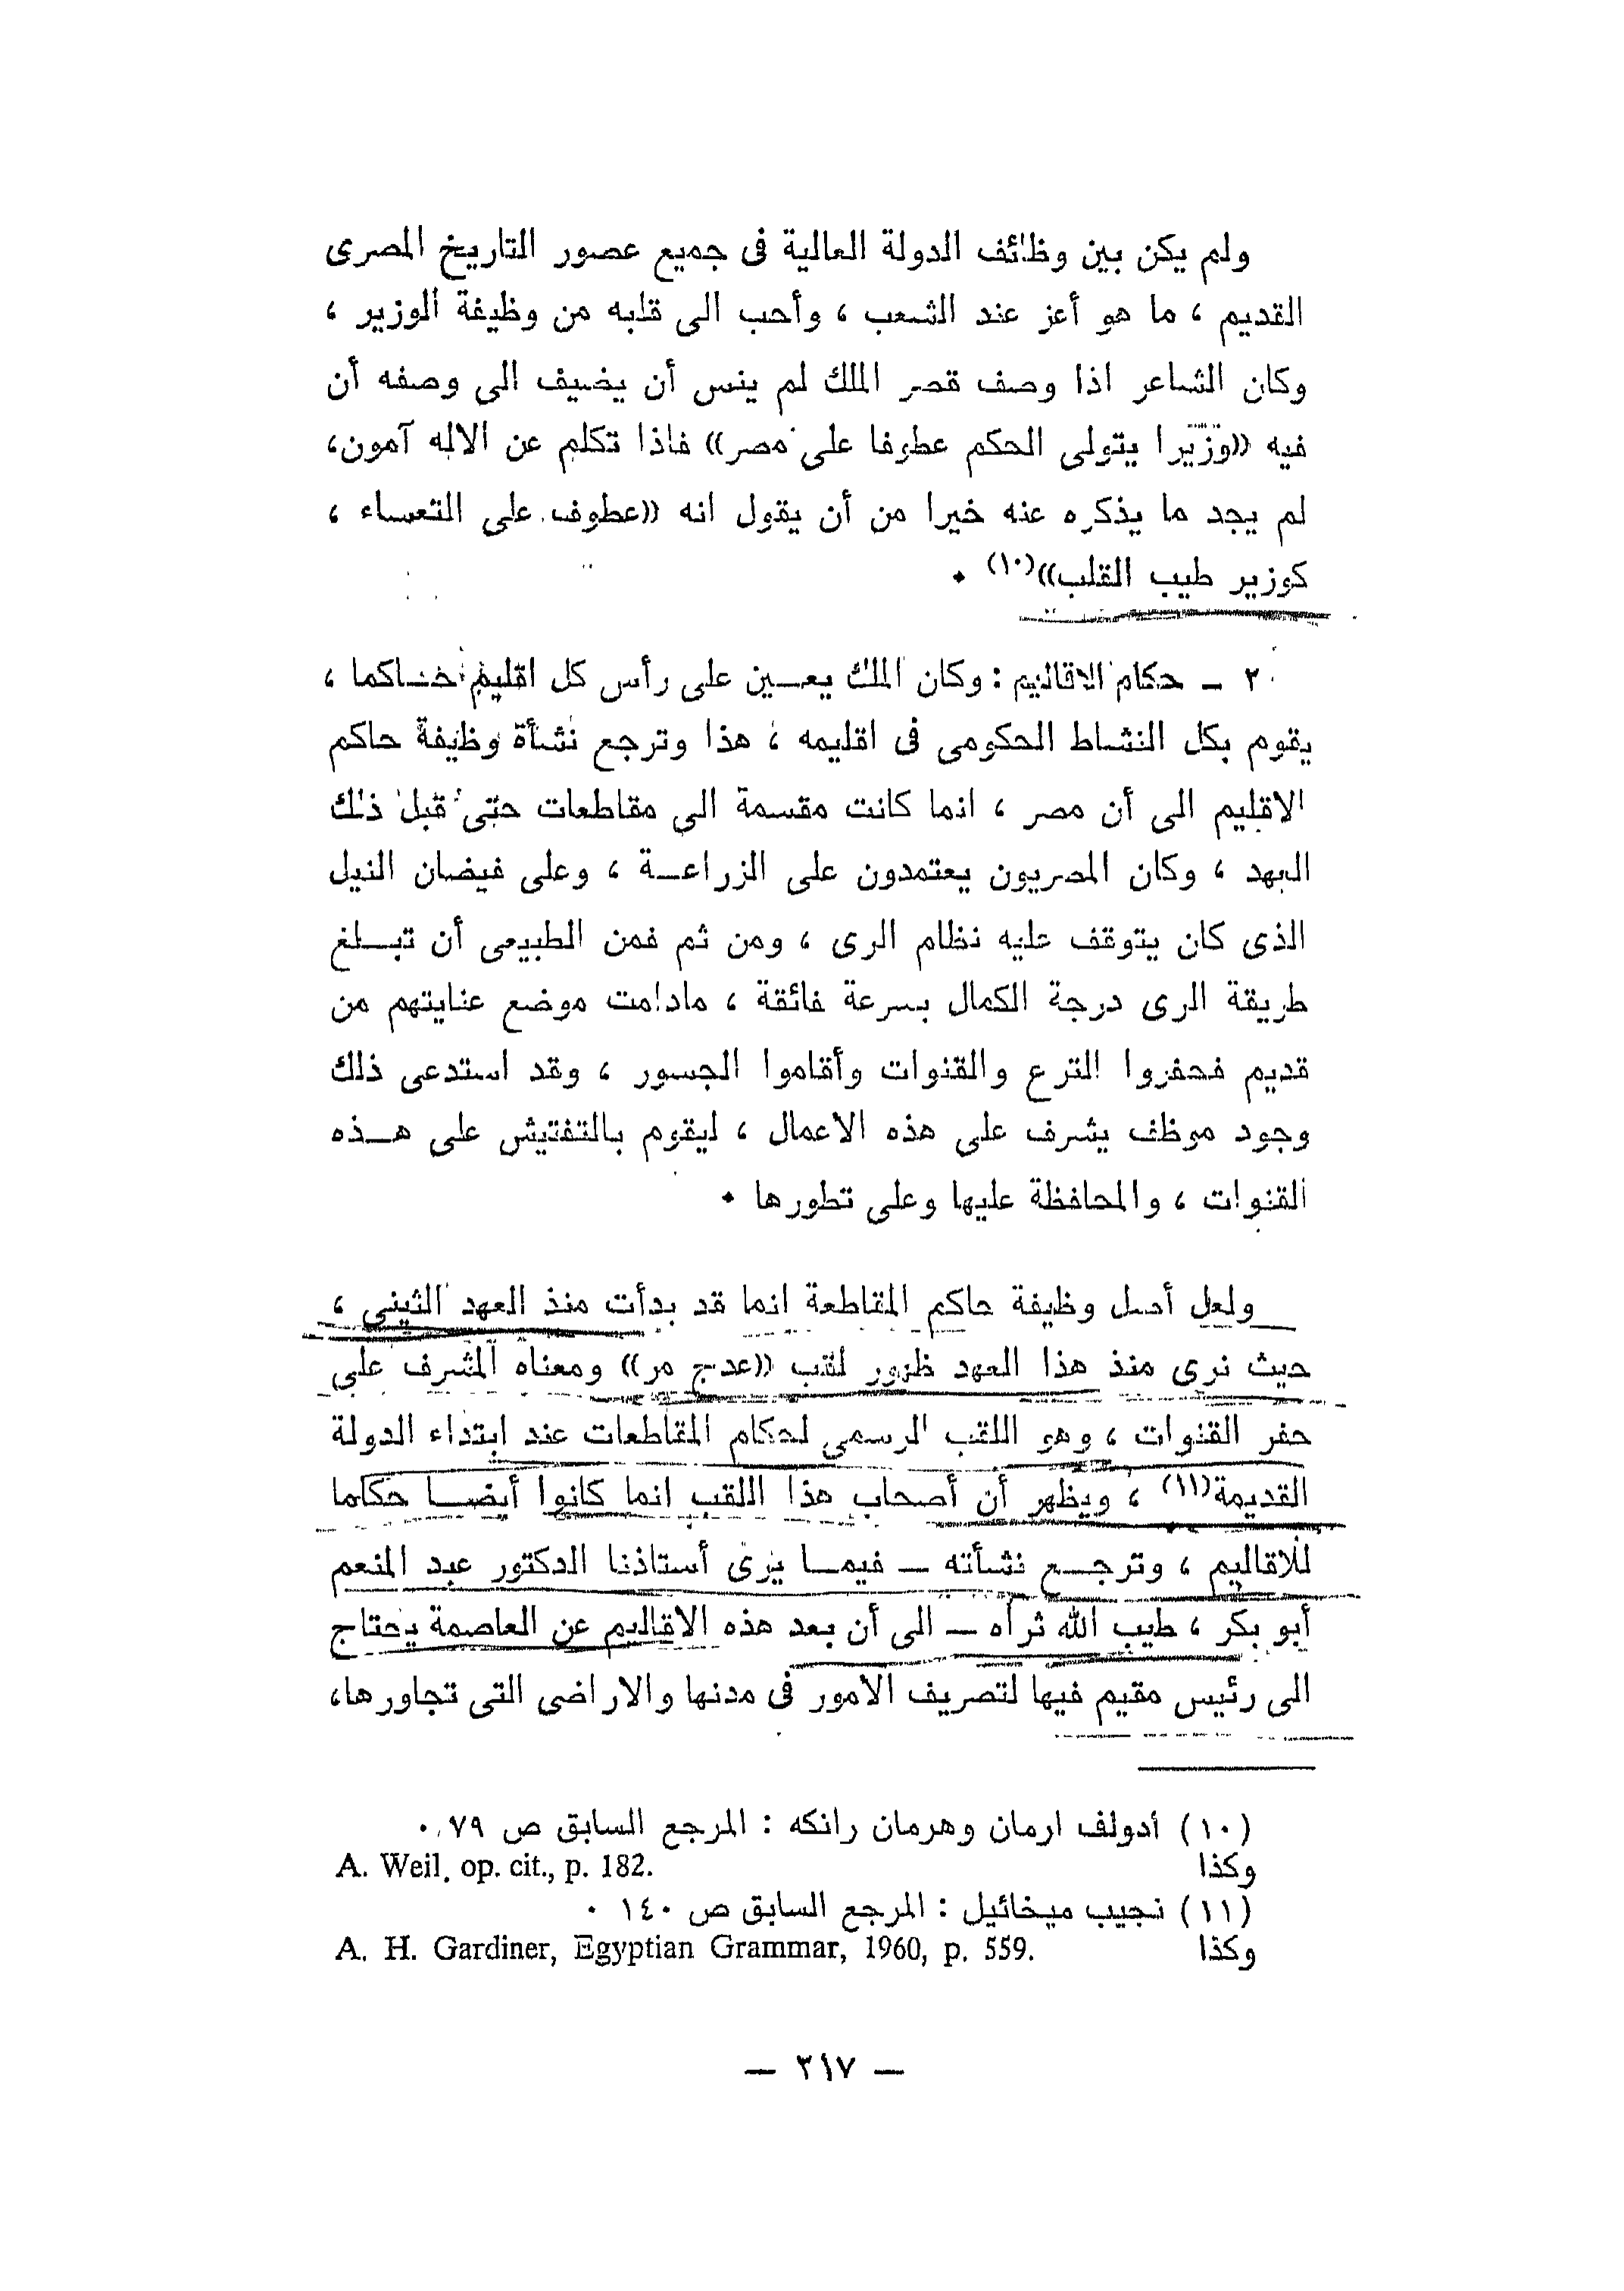 ولم يكن بين وظائف الدولة العالية فى جميع عصور التاريخ المصرى
القديم ، ما هو أعز عند الشعب ، وأحب الى قلبه من وظيفة الوزير ،
وكان الشاعر اذا وصف قصر الملك لم ينس أن يضيف الى وصفه أن
فيه «وزيرا يتولى الحكم عطوفا على مصر» فاذا تكلم عن الاله آمون،
لم يجد ما يذكره عنه خيرا من أن يقول انه «عطوف على التعساء ،
كوزير طيب القلب»(١٠) ٠
٢ ـ حكام الاقاليم : وكان الملك يعــين على رأس كل اقليم حــاكما ،
يقوم بكل النشاط الحكومى فى اقليمه ، هذا وترجع نشأة وظيفة حاكم
الاقليم الى أن مصر ، انما كانت مقسمة الى مقاطعات حتى قبل ذلك
العهد ، وكان المصريون يعتمدون على الزراعــة ، وعلى فيضان النيل
الذى كان يتوقف عليه نظام الرى ، ومن ثم فمن الطبيعى أن تبــلغ
طريقة الرى درجة الكمال بسرعة فائقة ، مادامت موضع عنايتهم من
قديم فحفروا الترع والقنوات وأقاموا الجسور ، وقد استدعى ذلك
وجود موظف يشرف على هذه الاعمال ، ليقوم بالتفتيش على هــذه
القنوات ، والمحافظة عليها وعلى تطورها ٠
ولعل أصل وظيفة حاكم المقاطعة انما قد بدأت منذ العهد الثينى ،
حيث نرى منذ هذا العهد ظهور لقب «عدج مر» ومعناه المشرف على
حفر القنوات ، وهو اللقب الرسمى لحكام المقاطعات عند ابتداء الدولة
القديمة(١١) ، ويظهر أن أصحاب هذا اللقب انما كانوا أيضــا حكاما
للاقاليم ، وترجــع نشأته ــ فيمــا يرى أستاذنا الدكتور عبد المنعم
أبو بكر ، طيب الله ثراه ــ الى أن بعد هذه الاقاليم عن العاصمة يحتاج
الى رئيس مقيم فيها لتصريف الامور فى مدنها والاراضى التى تجاورها،
(١٠) أدولف ارمان وهرمان رانكه : المرجع السابق ص ٧٩ ٠
وكذا A. Weil, op. cit., p. 182.
(١١) نجيب ميخائيل : المرجع السابق ص ١٤٠ ٠
وكذا A. H. Gardiner, Egyptian Grammar, 1960, p. 559.
— ٣١٧ —